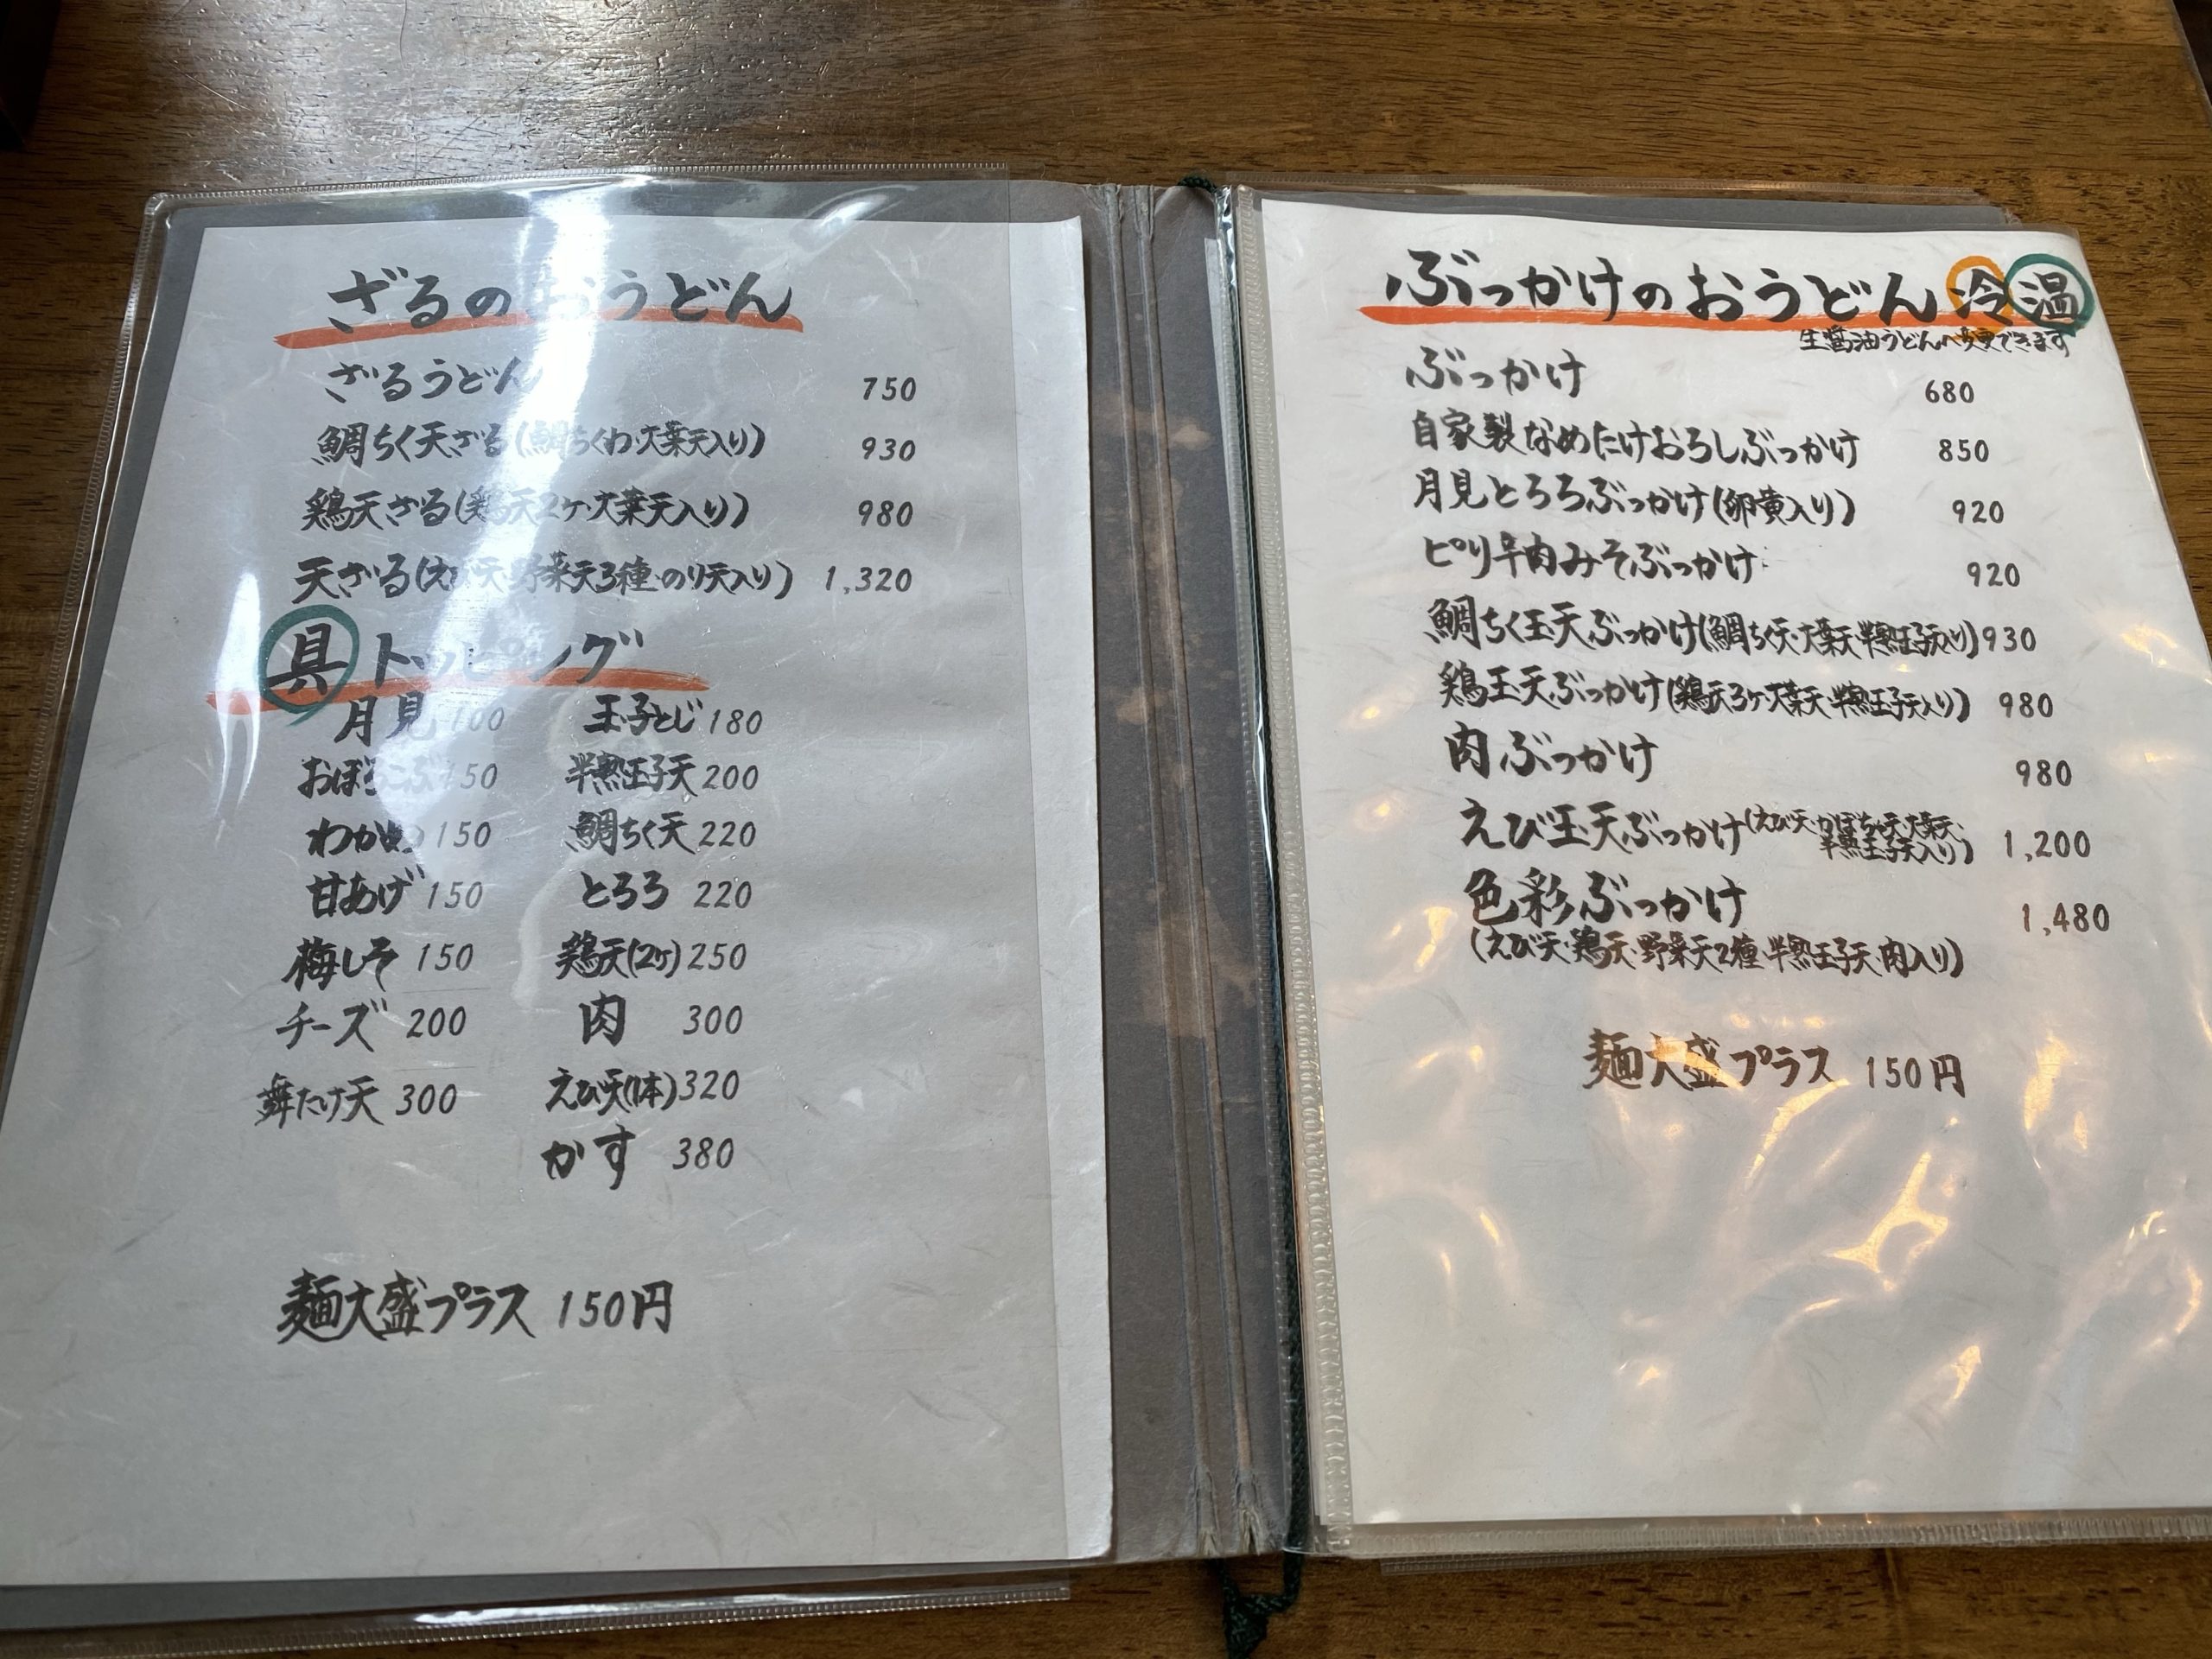 ざるのおうどん
ざるうどん 750
鯛ちく天ざる(鯛ちくわ・大葉天入り) 930
鶏天ざる(鶏天2ヶ・大葉天入り) 980
天ざる(えび天・野菜天3種・のり天入り) 1,320
具トッピング
月見 100 玉子とじ 180
おぼろこぶ 150 半熟玉子天 200
わかめ 150 鯛ちく天 220
甘あげ 150 とろろ 220
梅しそ 150 鶏天(2ヶ) 250
チーズ 200 肉 300
舞たけ天 300 えび天(1本) 320
かす 380
麺大盛プラス 150円
ぶっかけのおうどん 冷 温
生醤油うどんへ変更できます
ぶっかけ 680
自家製なめたけおろしぶっかけ 850
月見とろろぶっかけ(卵黄入り) 920
ピリ辛肉みそぶっかけ 920
鯛ちく玉天ぶっかけ(鯛ちく天・大葉天・半熟玉子天入り) 930
鶏玉天ぶっかけ(鶏天3ヶ・大葉天・半熟玉子天入り) 980
肉ぶっかけ 980
えび玉天ぶっかけ(えび天・かぼちゃ天・大葉天・
半熟玉子天入り) 1,200
色彩ぶっかけ 1,480
(えび天・鶏天・野菜天2種・半熟玉子天・肉入り)
麺大盛プラス 150円